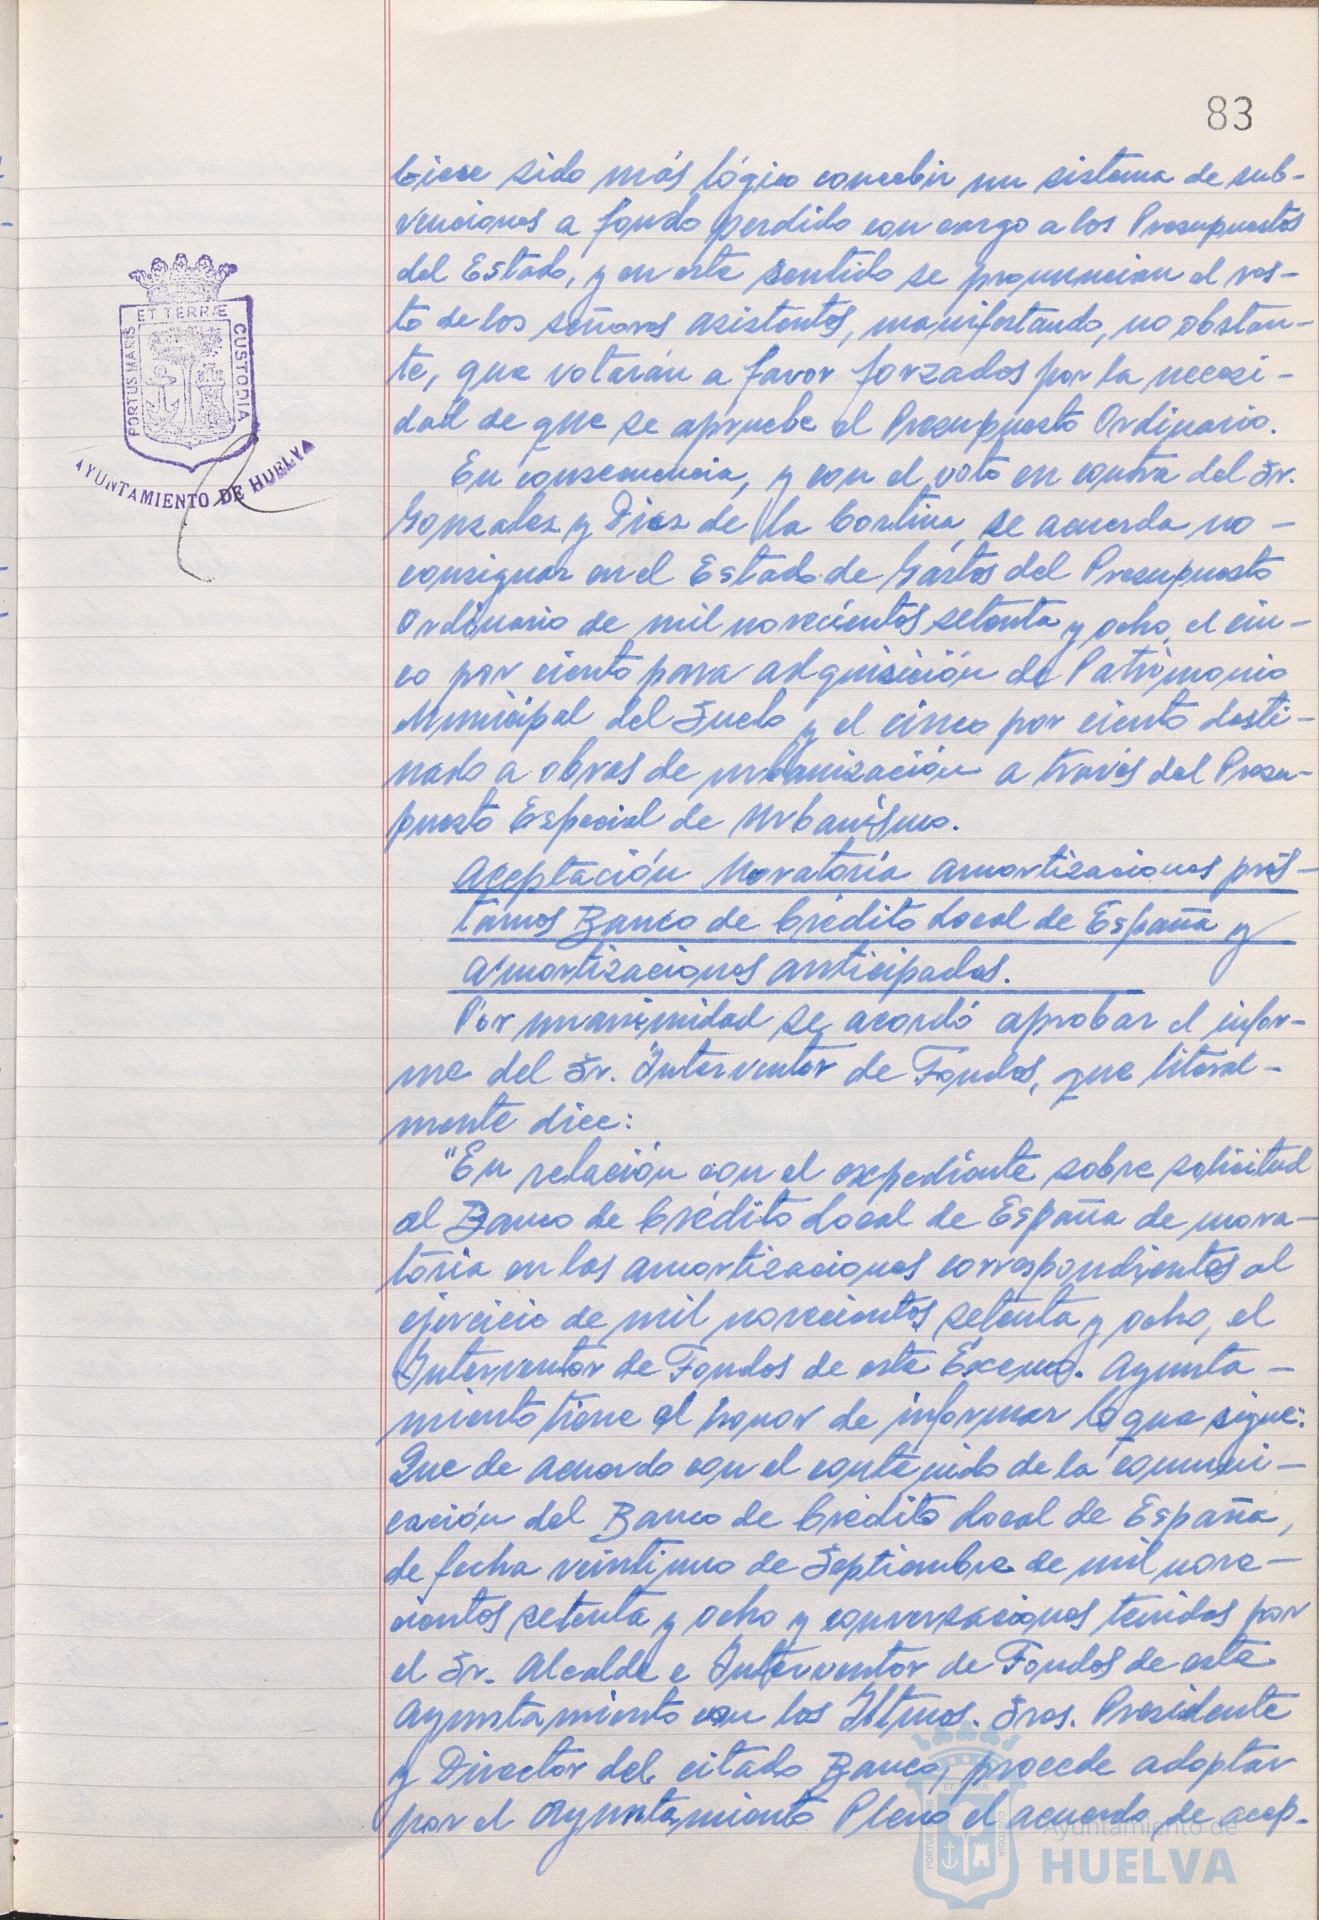 83
biese sido más lógico concebir un sistema de sub-
venciones a fondo perdido con cargo a los Presupuestos
del Estado, y en este sentido se pronuncian el res-
to de los señores asistentes, manifestando, no obstan-
te, que votarán a favor forzados por la necesi-
dad de que se apruebe el Presupuesto Ordinario.
En consecuencia, y con el voto en contra del Sr.
Gonzalez y Diez de la Cortina, se acuerda no
consignar en el Estado de Gastos del Presupuesto
Ordinario de mil novecientos setenta y ocho, el cin-
co por ciento para adquisición de Patrimonio
Municipal del Suelo y el cinco por ciento desti-
nado a obras de urbanización a través del Presu-
puesto Especial de Urbanismo.
Aceptación Moratoria amortizaciones prés-
tamos Banco de Crédito Local de España y
amortizaciones anticipadas.
Por unanimidad se acordó aprobar el infor-
me del Sr. Interventor de Fondos, que literal-
mente dice:
"En relación con el expediente sobre solicitud
al Banco de Crédito Local de España de mora-
toria en las amortizaciones correspondientes al
ejercicio de mil novecientos setenta y ocho, el
Interventor de Fondos de este Excmo. Ayunta-
miento tiene el honor de informar lo que sigue:
Que de acuerdo con el contenido de la comuni-
cación del Banco de Crédito Local de España,
de fecha veintiuno de Septiembre de mil nove-
cientos setenta y ocho y conversaciones tenidas por
el Sr. Alcalde e Interventor de Fondos de este
Ayuntamiento con los Iltmos. Sres. Presidente
y Director del citado Banco, procede adoptar
por el Ayuntamiento Pleno el acuerdo de acep-
PORTUS MARIS ET TERRÆ CUSTODIA
AYUNTAMIENTO DE HUELVA
Ayuntamiento de
HUELVA